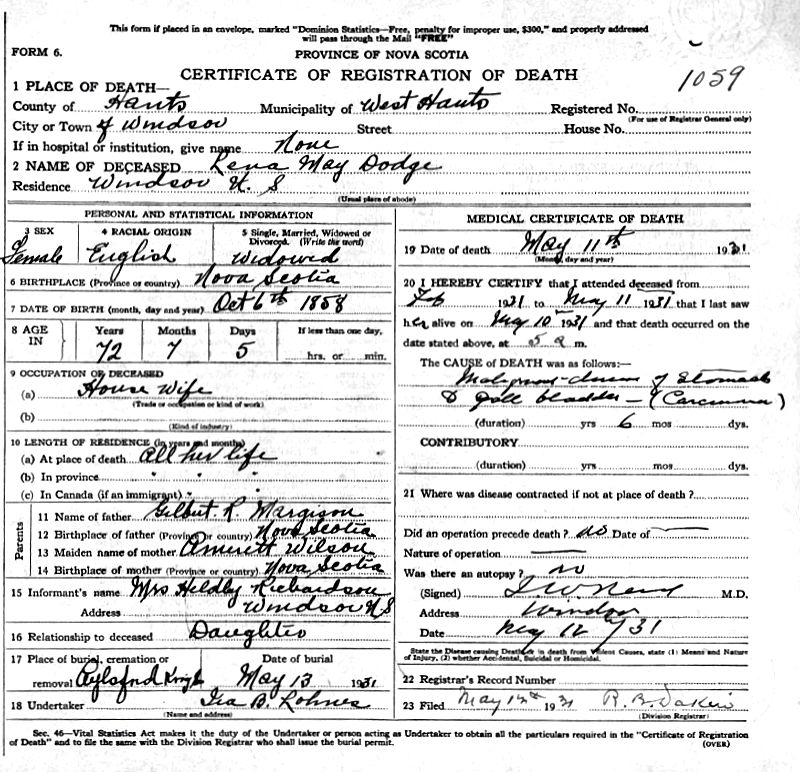 This form if placed in an envelope, marked "Dominion Statistics—Free, penalty for improper use, $300," and properly addressed
will pass through the Mail "FREE"
FORM 6.
PROVINCE OF NOVA SCOTIA
CERTIFICATE OF REGISTRATION OF DEATH
1059
1 PLACE OF DEATH—
County of Hants Municipality of West Hants Registered No.
(For use of Registrar General only)
City or Town of Windsor Street House No.
If in hospital or institution, give name None
2 NAME OF DECEASED Lena May Dodge
Residence Windsor N. S
(Usual place of abode)
PERSONAL AND STATISTICAL INFORMATION
3 SEX 4 RACIAL ORIGIN 5 Single, Married, Widowed or Divorced. (Write the word)
Female English Widowed
6 BIRTHPLACE (Province or country) Nova Scotia
7 DATE OF BIRTH (month, day and year) Oct 6th 1858
8 AGE IN Years Months Days If less than one day,
72 7 5 hrs. or min.
9 OCCUPATION OF DECEASED
(a) House Wife
(Trade or occupation or kind of work)
(b)
(Kind of industry)
10 LENGTH OF RESIDENCE (in years and months)
(a) At place of death All her life
(b) In province " "
(c) In Canada (if an immigrant) "
Parents
11 Name of father Gilbert R. Margison
12 Birthplace of father (Province or country) Nova Scotia
13 Maiden name of mother Wilson
14 Birthplace of mother (Province or country) Nova Scotia
15 Informant's name Mrs Richardson
Address Windsor N S
16 Relationship to deceased Daughter
17 Place of burial, cremation or Date of burial
removal May 13 1931
18 Undertaker Ira B.
(Name and address)
MEDICAL CERTIFICATE OF DEATH
19 Date of death May 11th 1931
(Month, day and year)
20 I HEREBY CERTIFY that I attended deceased from
Feb 1931 to May 11 1931 that I last saw
her alive on May 10th 1931 and that death occurred on the
date stated above, at 5 a m.
The CAUSE of DEATH was as follows:—
Malignant of Stomach
& Gall bladder — (Carcinoma)
(duration) yrs 6 mos dys.
CONTRIBUTORY
(duration) yrs mos dys.
21 Where was disease contracted if not at place of death?
Did an operation precede death? no Date of —
Nature of operation —
Was there an autopsy? no
(Signed) M.D.
Address Windsor
Date May 12/31
State the Disease causing Death, or in death from Violent Causes, state (1) Means and Nature
of Injury, (2) whether Accidental, Suicidal or Homicidal.
22 Registrar's Record Number
23 Filed May 12th 1931 R. B. Dakin
(Division Registrar)
Sec. 46—Vital Statistics Act makes it the duty of the Undertaker or person acting as Undertaker to obtain all the particulars required in the "Certificate of Registration
of Death" and to file the same with the Division Registrar who shall issue the burial permit. (OVER)